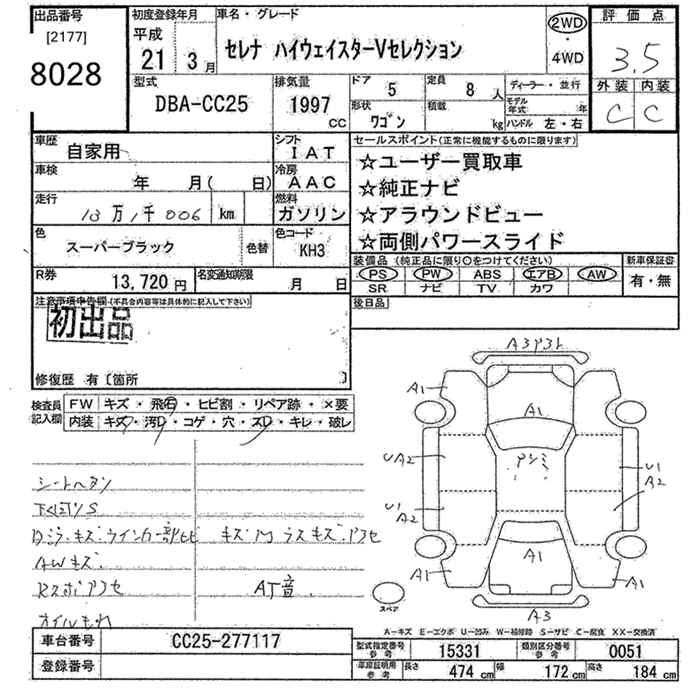 出品番号
[2177]
8028
初度登録年月
平成
21 3月
車名・グレード
セレナ ハイウェイスターVセレクション
2WD
・
4WD
評価点
3.5
外装 内装
C C
型式
DBA-CC25
排気量
1997
CC
ドア 5
定員 8 人
形状 ワゴン
積載 kg
ディーラー・並行
モデル年式 年
ハンドル 左・右
車歴 自家用
シフト IAT
車検 年 月( 日)
冷房 AAC
走行 10万1千006 km
燃料 ガソリン
色 スーパーブラック 色替
色コード KH3
R券 13,720円
名変通知期限 月 日
セールスポイント(正常に機能するものに限ります)
☆ユーザー買取車
☆純正ナビ
☆アラウンドビュー
☆両側パワースライド
装備品(純正品に限り○をつけてください)
新車保証書
PS PW ABS エアB AW
有・無
SR ナビ TV カワ
後日品
注意事項申告欄(不具合内容等は具体的に記入して下さい)
初出品
修復歴 有〔箇所 〕
検査員記入欄
FW キズ・飛石・ヒビ割・リペア跡・×要
内装 キズ・汚D・コゲ・穴・スD・キレ・破レ
シートヘタリ
下回りS
AWキズ
AT音
オイルもれ
A1
A1
UA2
U1
A2
U1
A2
A1
A1
A1
A3
スペア
A-キズ E-エクボ U-凹み W-補修跡 S-サビ C-腐食 XX-交換済
車台番号 CC25-277117
登録番号
型式指定番号 参考 15331
類別区分番号 参考 0051
車庫証明用 参考 長さ 474 cm 幅 172 cm 高さ 184 cm